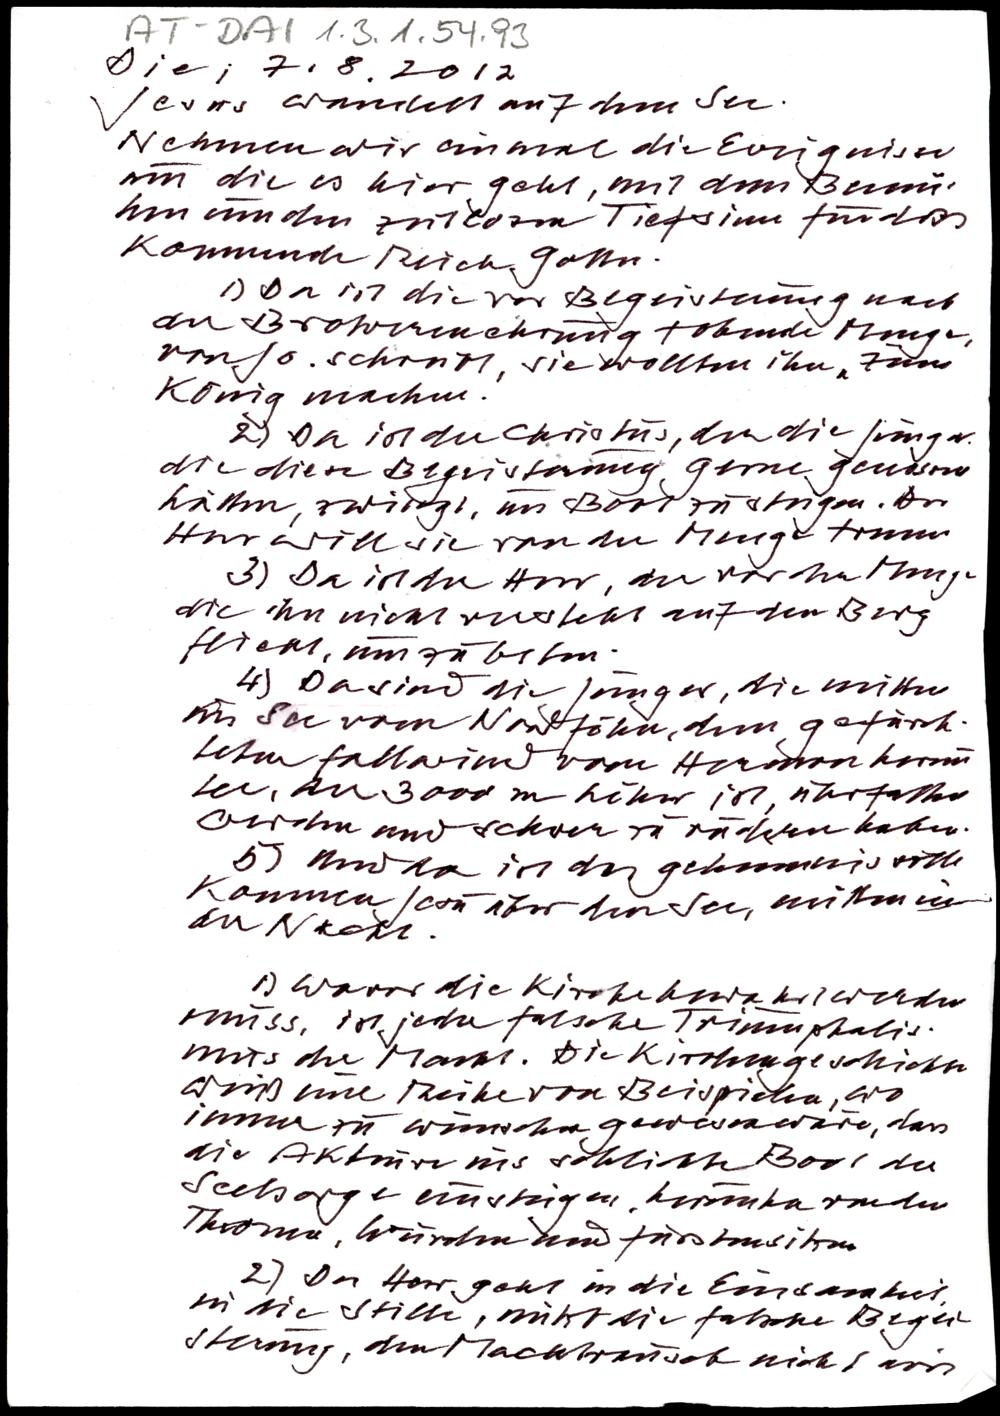 AT-DAI 1.3.1.54.93
Die, 7.8.2012
Jesus wandelt auf dem See.
Nehmen wir einmal die Ereignisse
um die es hier geht, mit dem Bemü-
hen um den zeitlosen Tiefsinn für das
Kommende Reich Gottes.
1) Da ist die vor Begeisterung nach
der Brotvermehrung tobende Menge,
von Jo. schreibt, sie wollten ihn „zum
König machen.
2) Da ist der Christus, der die Jünger.
die diese Begeisterung gerne genossen
hätten, zwingt, ins Boot zu steigen. Der
Herr will sie von der Menge trennen
3) Da ist der Herr, der vor der Menge
die ihn nicht versteht auf den Berg
flieht, um zu beten.
4) Da sind die Jünger, die mitten
im See vom Nordföhn, dem gefürch-
teten Fallwind vom Hermon herun
ter, der 3000 m höher ist, überfallen
werden und schwer zu rudern haben.
5) Und da ist das geheimnisvolle
Kommen Jesu über den See, mitten in
der Nacht.
1) Wovor die Kirche bewahrt werden
muss, ist jeder falsche Triumphalis-
mus der Macht. Die Kirchengeschichte
weiß eine Reihe von Beispielen, wo
immer zu wünschen gewesen wäre, dass
die Akteure ins schlichte Boot der
Seelsorge einsteigen, herunter von den
Thronen, Würden und Fürstensitzen
2) Der Herr geht in die Einsamkeit,
in die Stille, nicht die falsche Begei-
sterung, den Machtrausch nicht